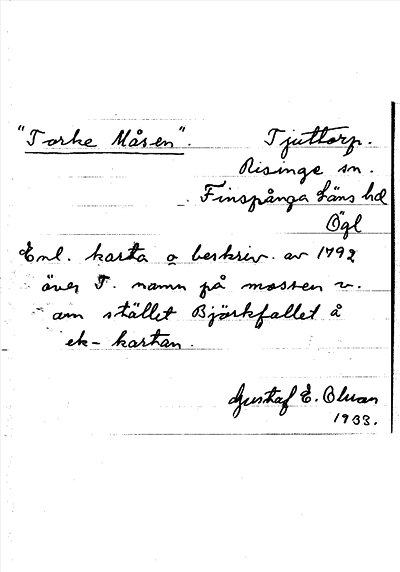 "Torke Måsen".
Tjuttorp.
Risinge sn.
Finspånga läns hd
Ögl
Enl. karta o beskriv. av 1792
över T. namn på mossen v.
om stället Björkfallet å
ek-kartan.
Gustaf E.
1933.